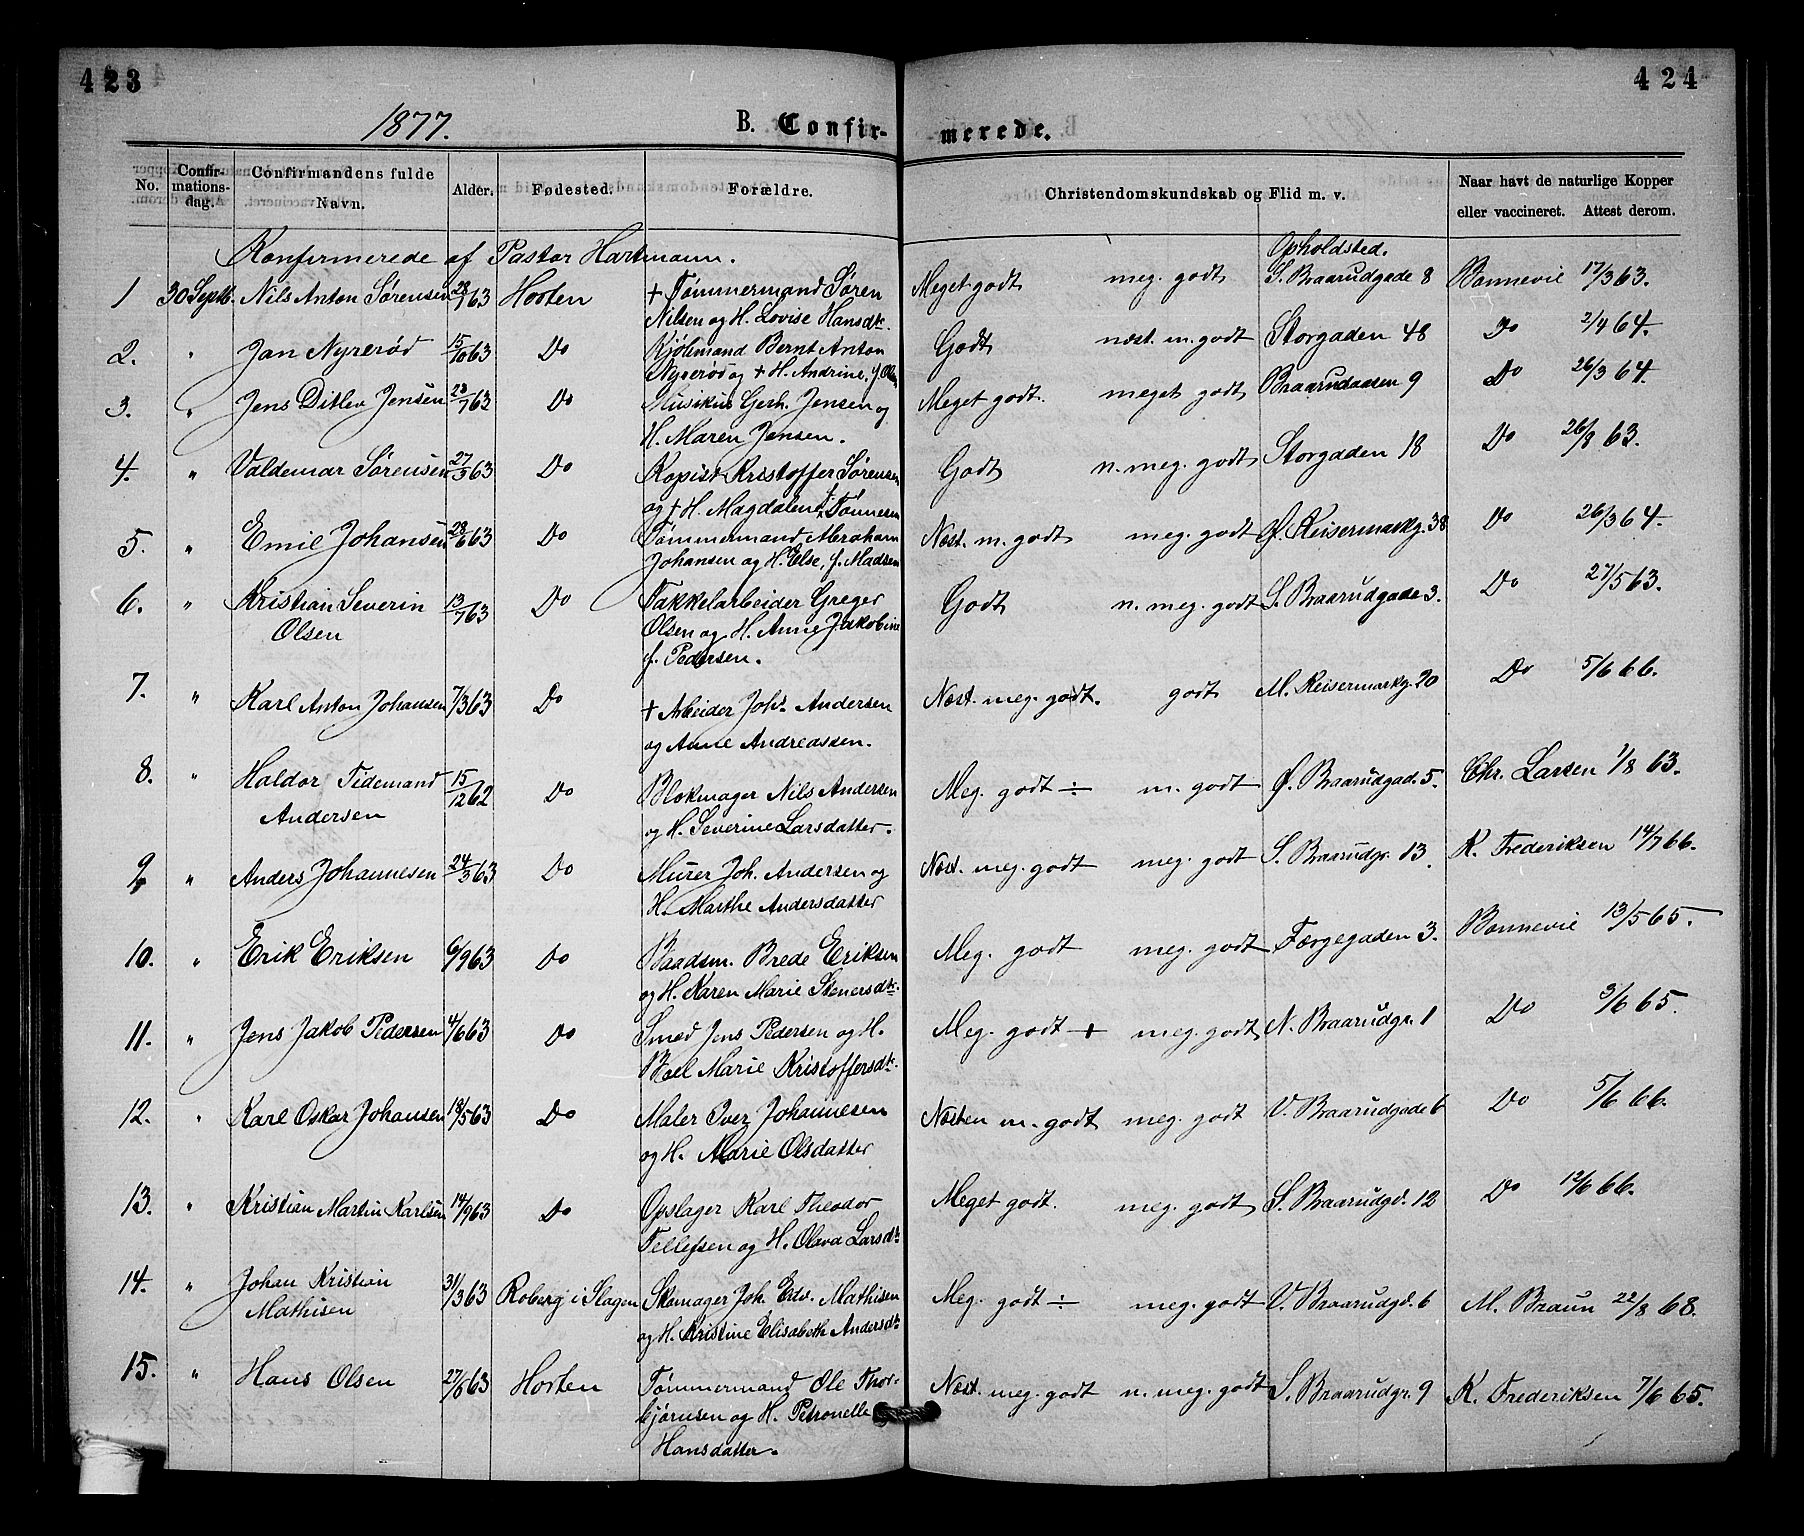 423
424
1877.
B. Confir-
merede.
No.
Confir-
mations-
dag.
Confirmandens fulde
Navn.
Alder.
Fødested.
Forældre.
Christendomskundskab og Flid m. v.
Naar havt de naturlige Kopper
eller vaccineret. Attest derom.
Konfirmerede af Pastor Hartmann.
Opholdsted.
1 30 Septb. Nils Anton Sørensen 63 Horten + Tømmermand Søren Meget godt meg. godt S. Braarudgade 8 Bonnevie 17/3 63.
Nilsen og H. Lovise Hansdt.
2. " Jan Nyrerød 15/10 63 Do Kjølemand Bernt Anton Godt næst. m. godt Storgaden 48 Do 2/4 64.
Nyrerød og + H. Andrine, f.
3. " Jens Ditlev Jensen 63 Do Musikus Gerh. Jensen og Meget godt. meget godt Braarudaasen 9 Do 26/3 64.
H. Maren Jensen.
4. " Valdemar Sørensen 63 Do Kopist Kristoffer Sørensen Godt n. meg. godt Storgaden 18 Do 26/8 63.
og + H. Magdalene f. Tønnesen
5. " Emil Johansen 63 Do Tømmermand Abraham Næst. m. godt meg. godt Ø. Keisermarkg. 38 Do 26/3 64.
Johansen og H. Else, f. Madsen
6. " Kristian Severin 13/7 63 Do Takkelarbeider Greger Godt n. meg. godt S. Braarudgade 3. Do 27/5 63.
Olsen Olsen og H. Anne Jakobine
f. Pedersen.
7. " Karl Anton Johansen 7/3 63 Do + Arbeider Joh. Andersen Næst. meg. godt. godt M. Keisermarkg. 20 Do 5/6 66.
og Anne Andreassen.
8. " Haldor Tidemand 15/12 62 Do Blokmager Nils Andersen Meg. godt ÷ m. godt Ø. Braarudgad. 5. Chr. Larsen 1/8 63.
Andersen og H. Severine Larsdatter.
9 " Anders Johannesen 24/3 63 Do Murer Joh. Andersen og Næst. meg. godt meg. godt S. Braarudgr. 13. K. Frederiksen 14/7 66.
H. Marthe Andersdatter
10. " Erik Eriksen 6/9 63 Do Baadsm. Brede Eriksen Meg. godt meg. godt Færgegaden 3. Bonnevie 13/5 65.
og H. Karen Marie Stenersdt.
11. " Jens Jakob Pedersen 4/6 63 Do Smed Jens Pedersen og H. Meg. godt + meg. godt N. Braarudgr. 1 Do 3/6 65.
Boel Marie Kristoffersdt.
12. " Karl Oskar Johansen 18/5 63 Do Maler Iver Johannesen Næsten m. godt meg. godt V. Braarudgade 6 Do 5/6 66.
og H. Marie Olsdatter
13. " Kristian Martin Karlsen 14/9 63 Do Opslager Karl Theodor Meget godt. meg. godt S. Braarudgd. 12 Do 12/6 66.
Tellefsen og H. Olava Larsdt.
14. " Johan Kristian 31/3 63 Roberg i Slagen Skomager Joh. Edv. Mathisen Meg. godt ÷ meg. godt V. Braarudgd. 6 M. Braun 22/8 68.
Mathisen og H. Kristine Elisabeth Andersdt.
15. " Hans Olsen 27/6 63 Horten Tømmermand Ole Thor- Næst. meg. godt n. meg. godt S. Braarudgr. 9 K. Frederiksen 7/6 65.
bjørnsen og H. Petronelle
Hansdatter.